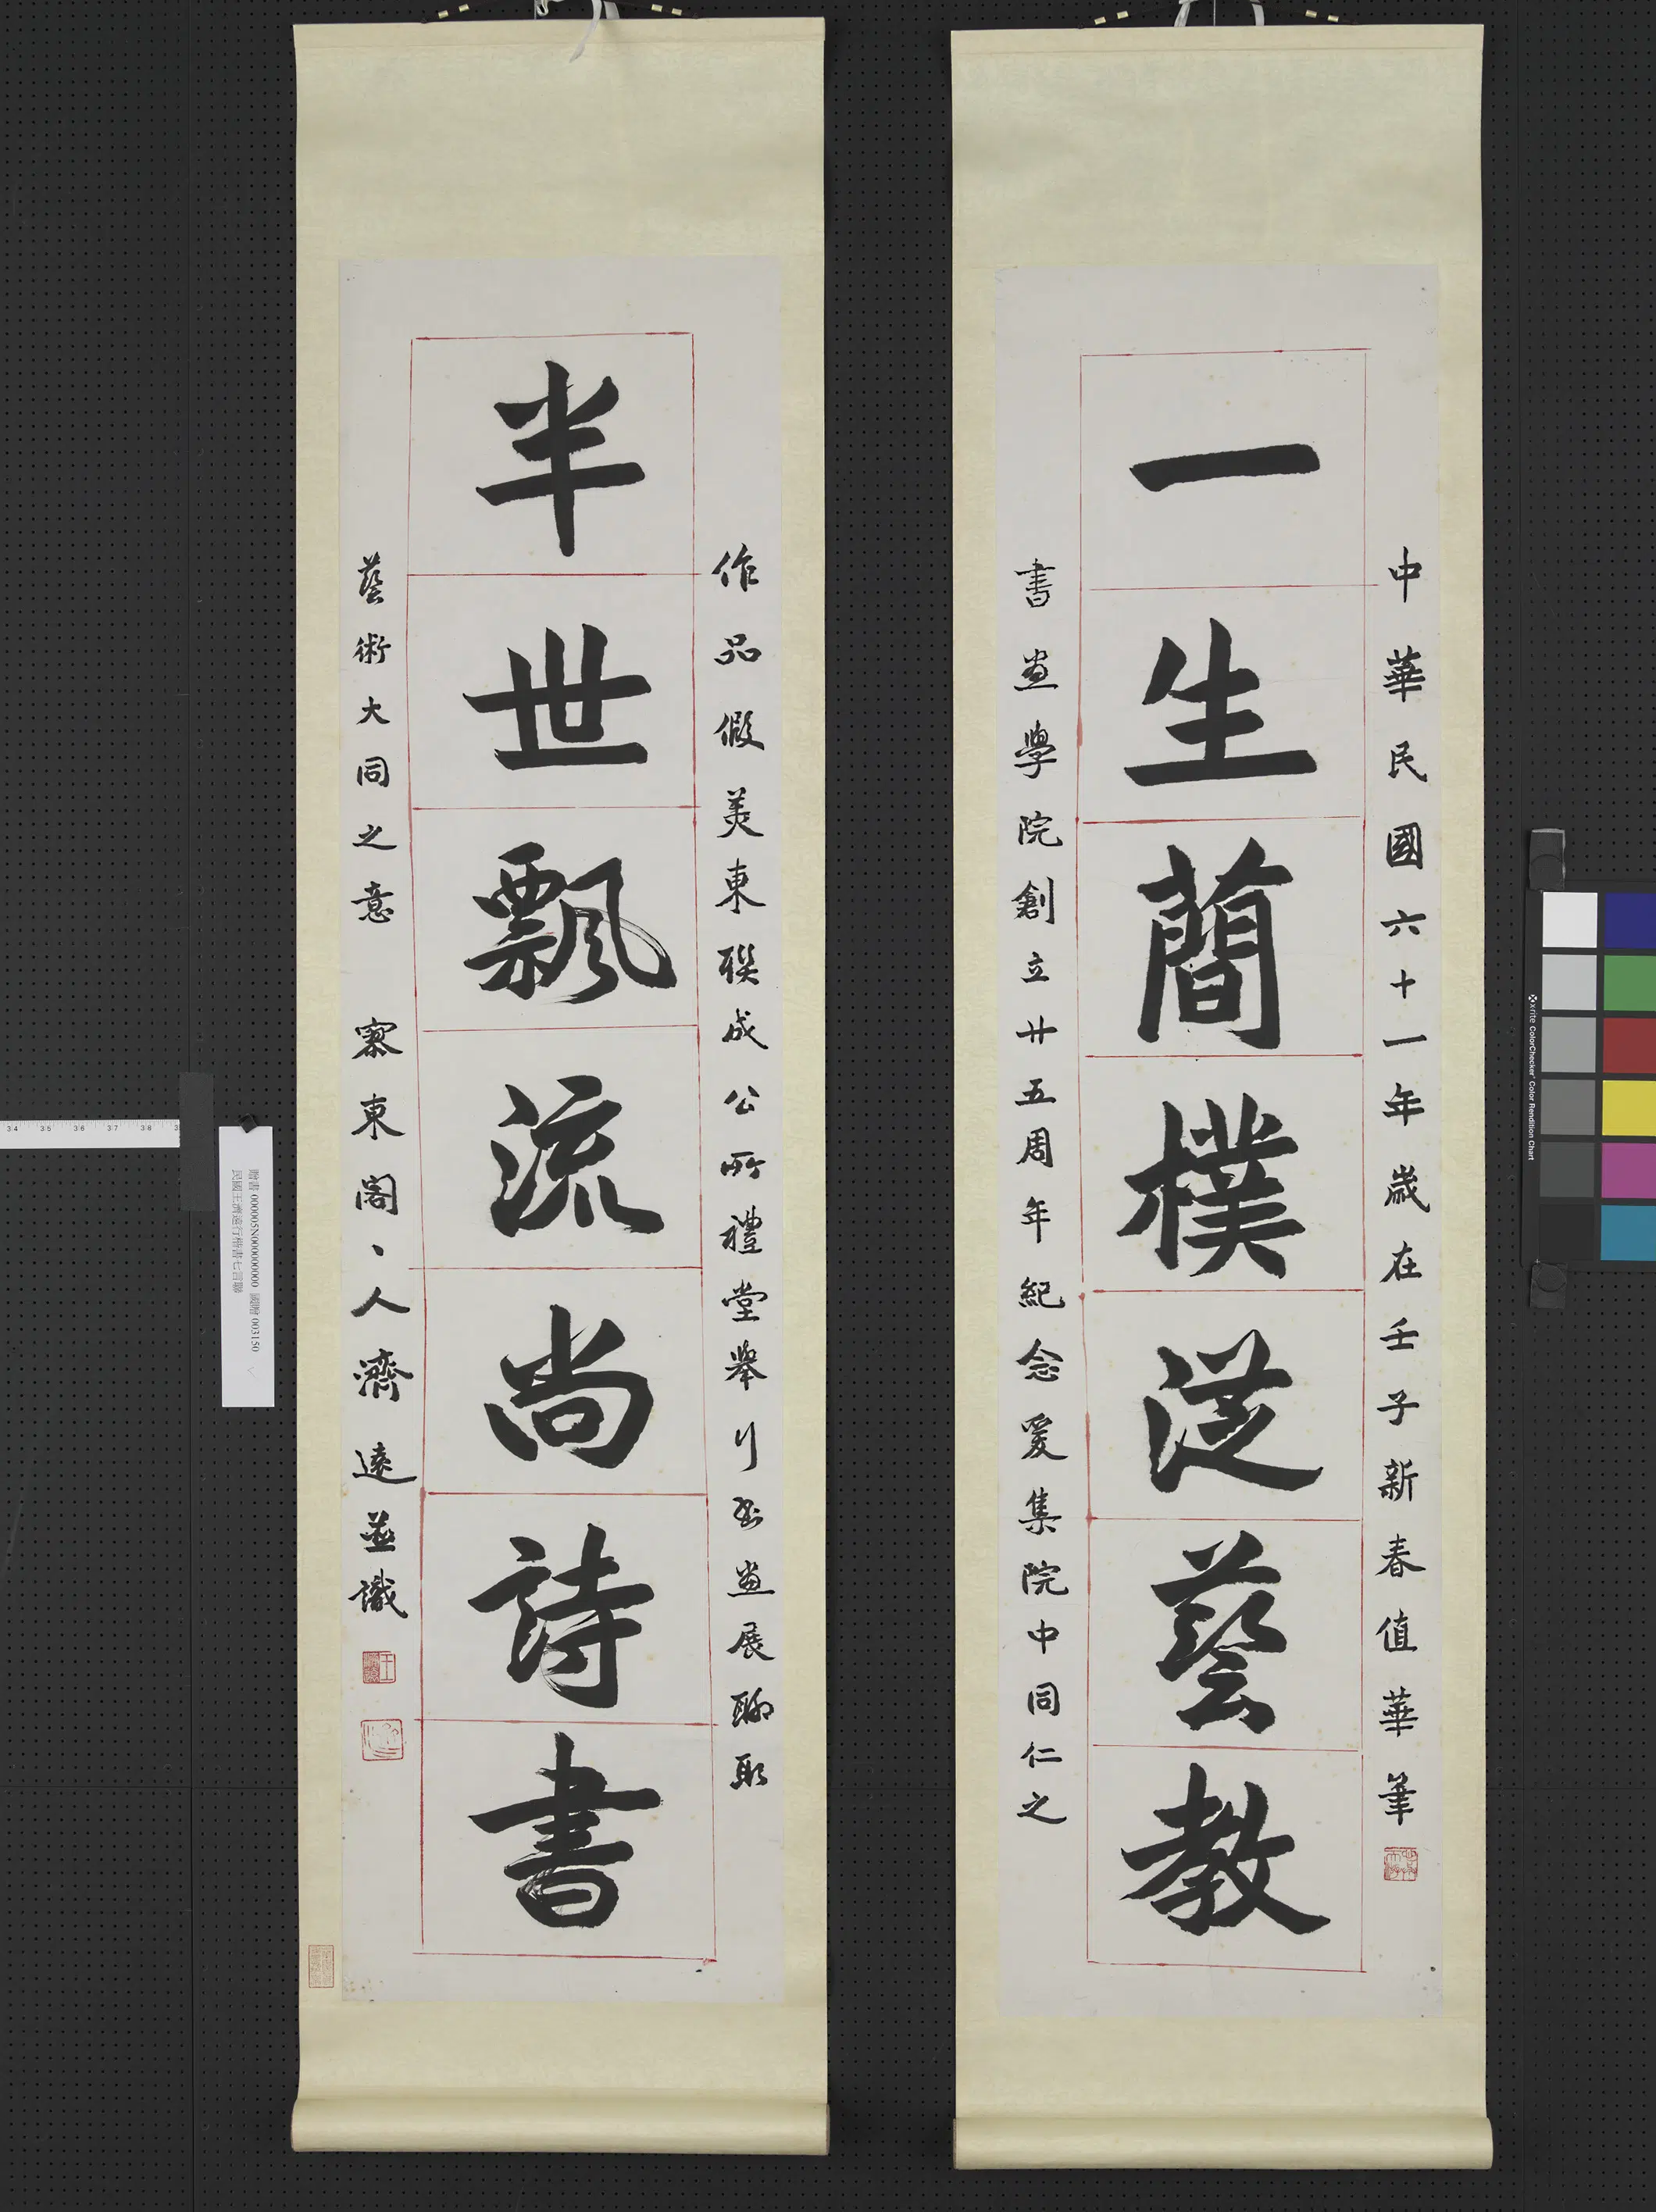 中華民國六十一年歲在壬子新春值華筆
一生蕳樸從藝教
書畫學院創立廿五周年紀念爰集院中同仁之
作品假美東聯成公所禮堂舉行書畫展聊取
半世飄流尚詩書
藝術大同之意 東閣、人濟遠並識
贈書 000005N000000000 國贈 003150
民國王濟遠行楷書七言聯
34 35 36 37 38
xrite ColorChecker Color Rendition Chart